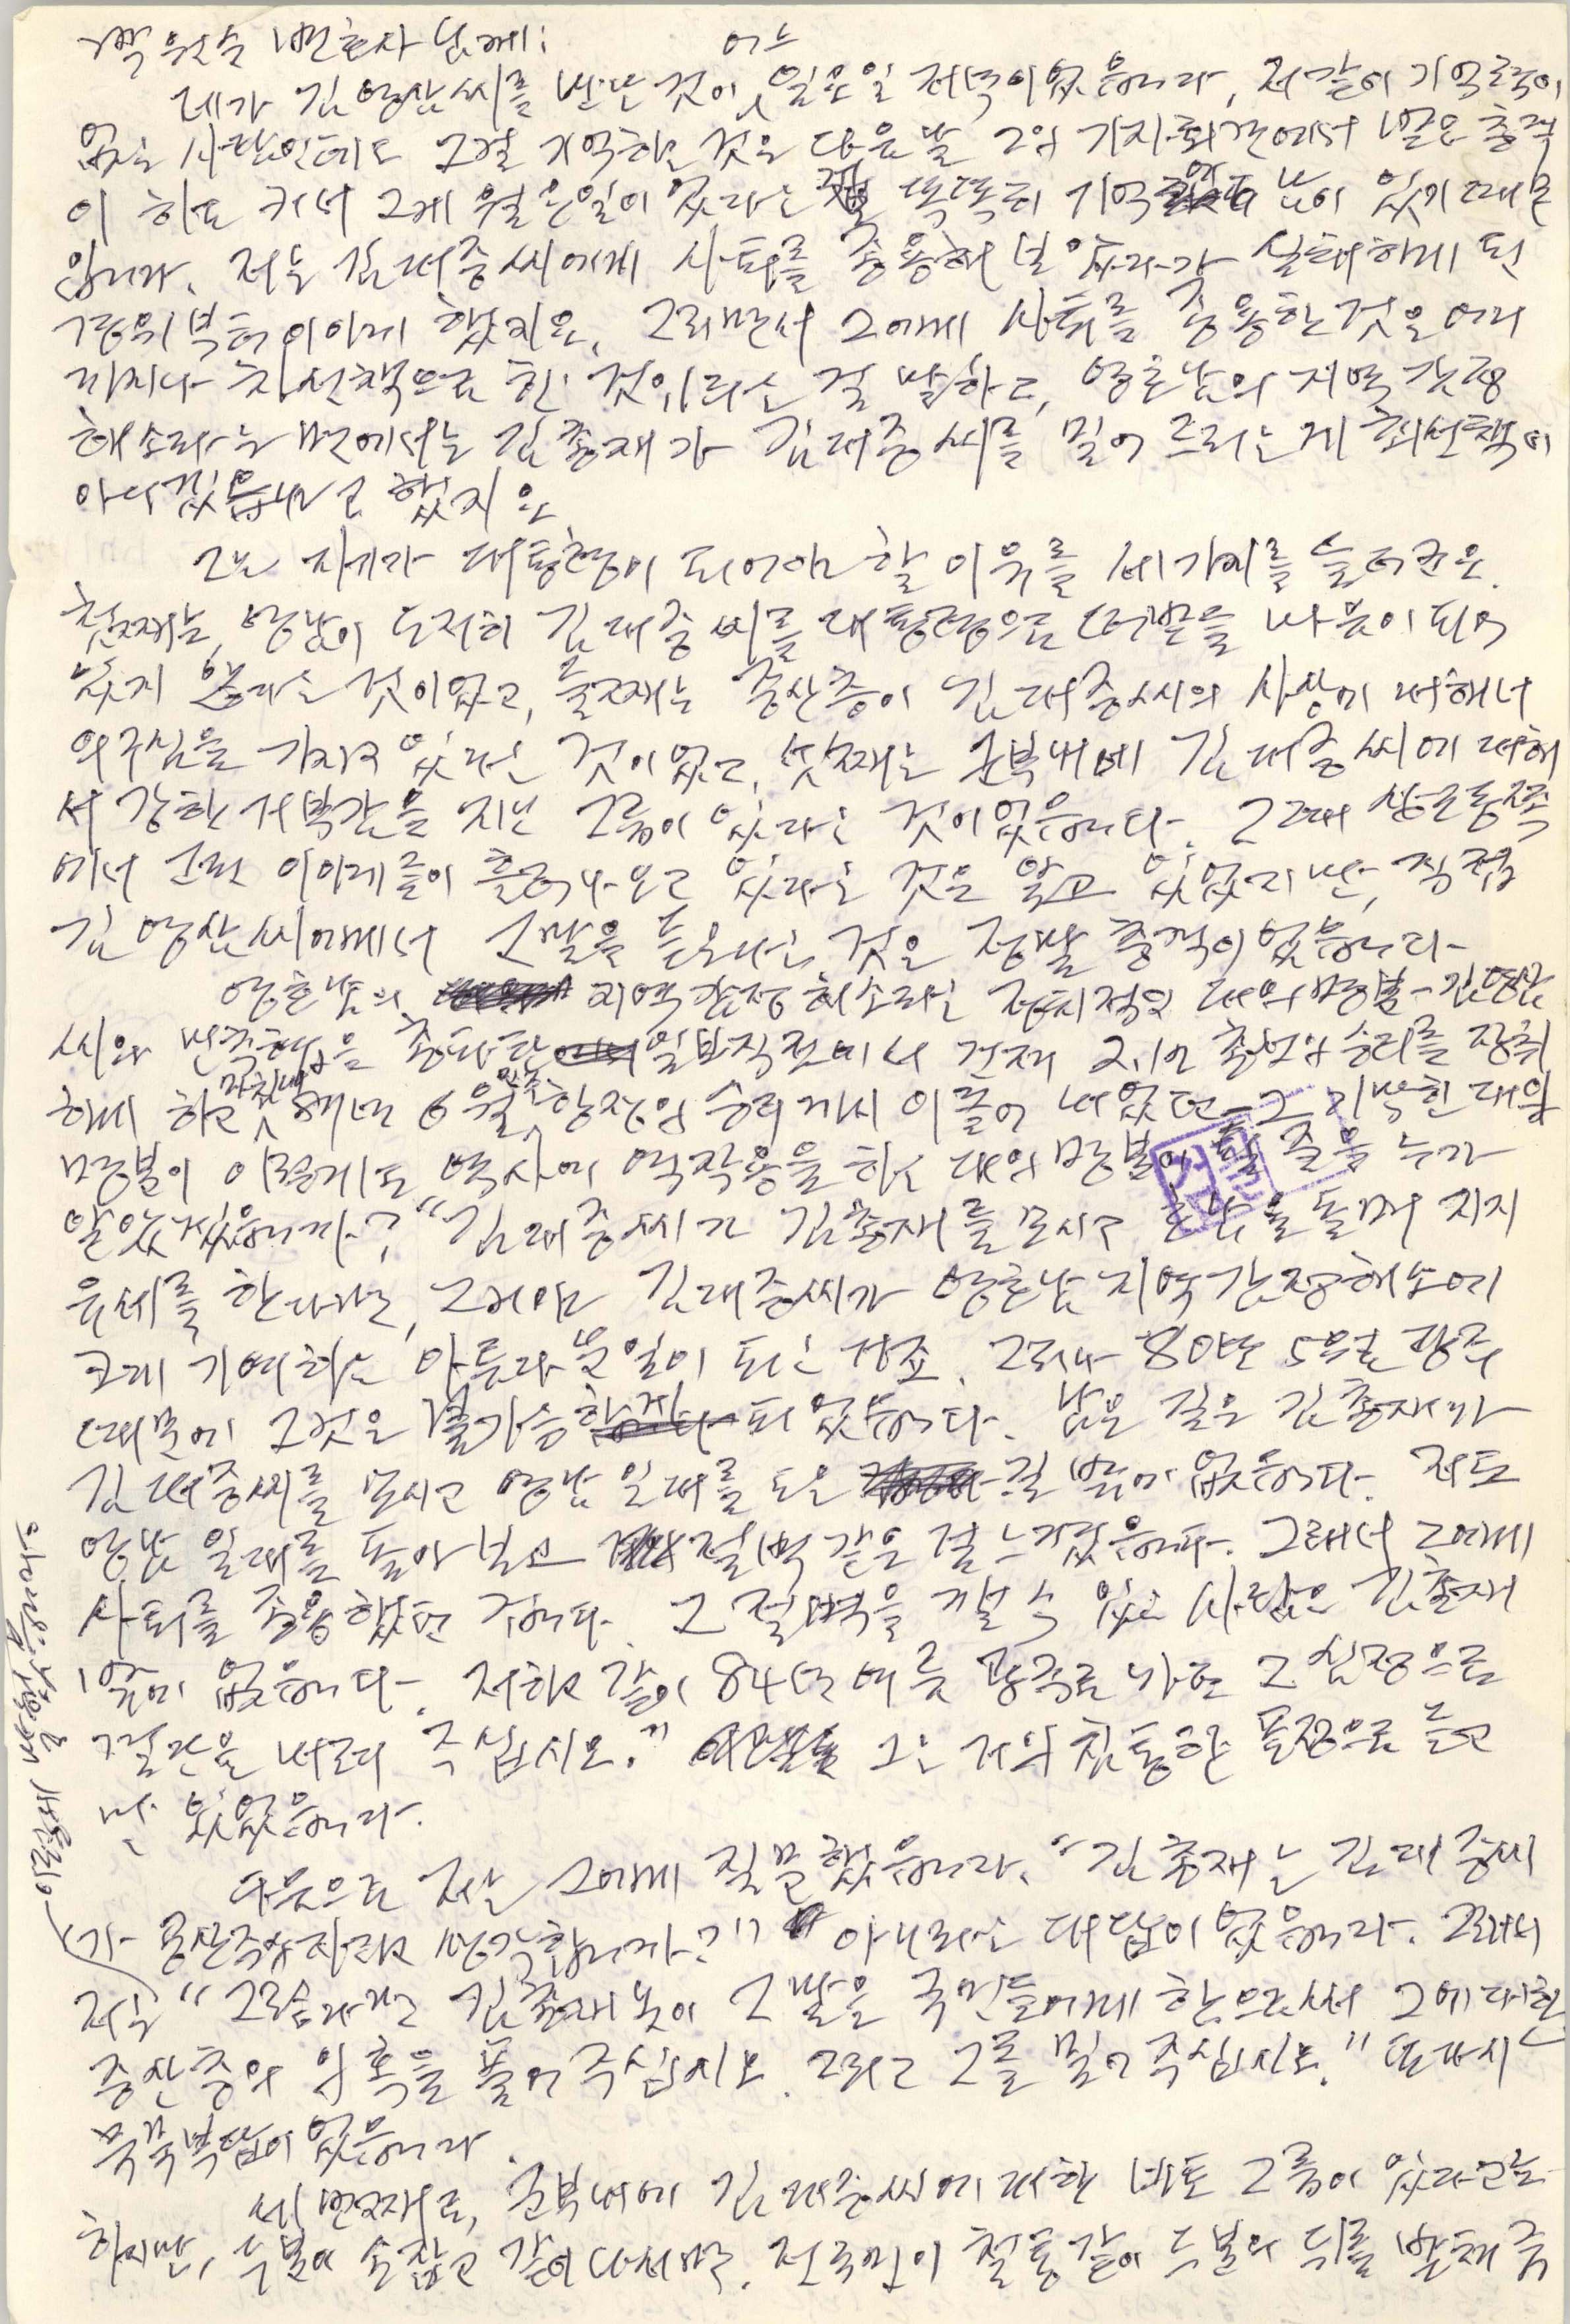 박용길 변호사님께:
어느
제가 김영삼씨를 만난 것이 일요일 저녁이었읍니다, 저같이 기억력이
없는 사람인데도 그걸 기억하는 것은 다음날 그의 기자회견에서 받은 충격
이 하도 커서 그게 월요일이었다는 걸 똑똑히 기억 남아 있기 때문
입니다. 저는 김대중씨에게 사퇴를 종용해 보았다가 실패하게 된
경위부터 이야기 했지요. 그러면서 그에게 사퇴를 종용한 것은 어디
까지나 차선책으로 한 것이라는 걸 말하고, 영호남의 지역감정
해소라는 면에서는 김총재가 김대중씨를 밀어 드리는게 최선책이
아니겠읍니까고 했지요
그는 자기가 대통령이 되어야 할 이유를 세가지를 들더군요.
첫째는, 영남이 도저히 김대중씨를 대통령으로 떠받들 마음이 되어
있지 않다는 것이었고, 둘째는 중산층이 김대중씨의 사상에 대해서
의구심을 가지고 있다는 것이었고, 셋째는 군부내에 김대중씨에 대해
서 강한 거부감을 지닌 그룹이 있다는 것이었읍니다. 그때 상도동쪽
에서 그런 이야기들이 흘러나오고 있다는 것은 알고 있었지만, 직접
김영삼씨에게서 그 말을 들으니 것은 정말 충격이었읍니다.
영호남의 지역감정 해소라는 정치적인 대의명분 - 김영삼
씨와 민추협을 일보직전에서 건져 2.12 총선의 승리를 쟁취
하게 하고 마침내 87년 6월 민주항쟁의 승리까지 이끌어 내었던 그 대의
명분이 이렇게도 역사에 역작용을 하는 대의명분이 될 줄을 누가
알았겠읍니까? “김대중씨가 김총재를 모시고 호남을 돌며 지지
유세를 한다면, 그거야 김대중씨가 영호남 지역감정해소에
크게 기여하는 아름다운 일이 되는 거죠. 그러나 80년 5월 광주
때문에 그것은 불가능 되었읍니다. 남은 길은 김총재가
김대중씨를 모시고 영남 일대를 도는 길 밖에 없읍니다. 저도
영남 일대를 돌아 보고 절벽 같은 걸 느꼈읍니다. 그래서 그에게
사퇴를 종용했던 겁니다. 그 절벽을 깰 수 있는 사람은 김총재
밖에 없읍니다. 저하고 같이 84년 여름 광주로 가던 그 심정으로
결단을 내려 주십시오.” 그는 거의 침통한 표정으로 듣고
만 있었읍니다.
다음으로 저는 그에게 질문했읍니다. “김총재는 김대중씨
가 공산주의자라고 생각합니까?” 아니라는 대답이었읍니다. 그래서
저는 “그렇다면 김총재님이 그 말을 국민들에게 함으로써 그에 대한
중산층의 의혹을 풀어 주십시오. 그리고 그를 밀어 주십시오.” 또다시
묵묵부답이었읍니다.
세번째로, 군부내에 김대중씨에 대한 비토 그룹이 있다고는
하지만, 두 분이 손잡고 같이 나서면, 전국민이 철통같이 두 분의 뒤를 받쳐 줄